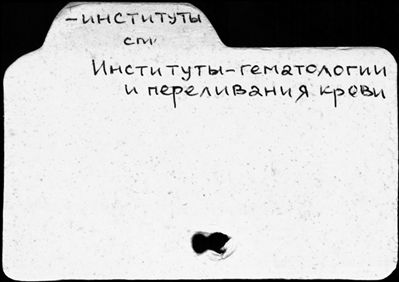 -институты
сп
Институты-гематологии
и переливания крови